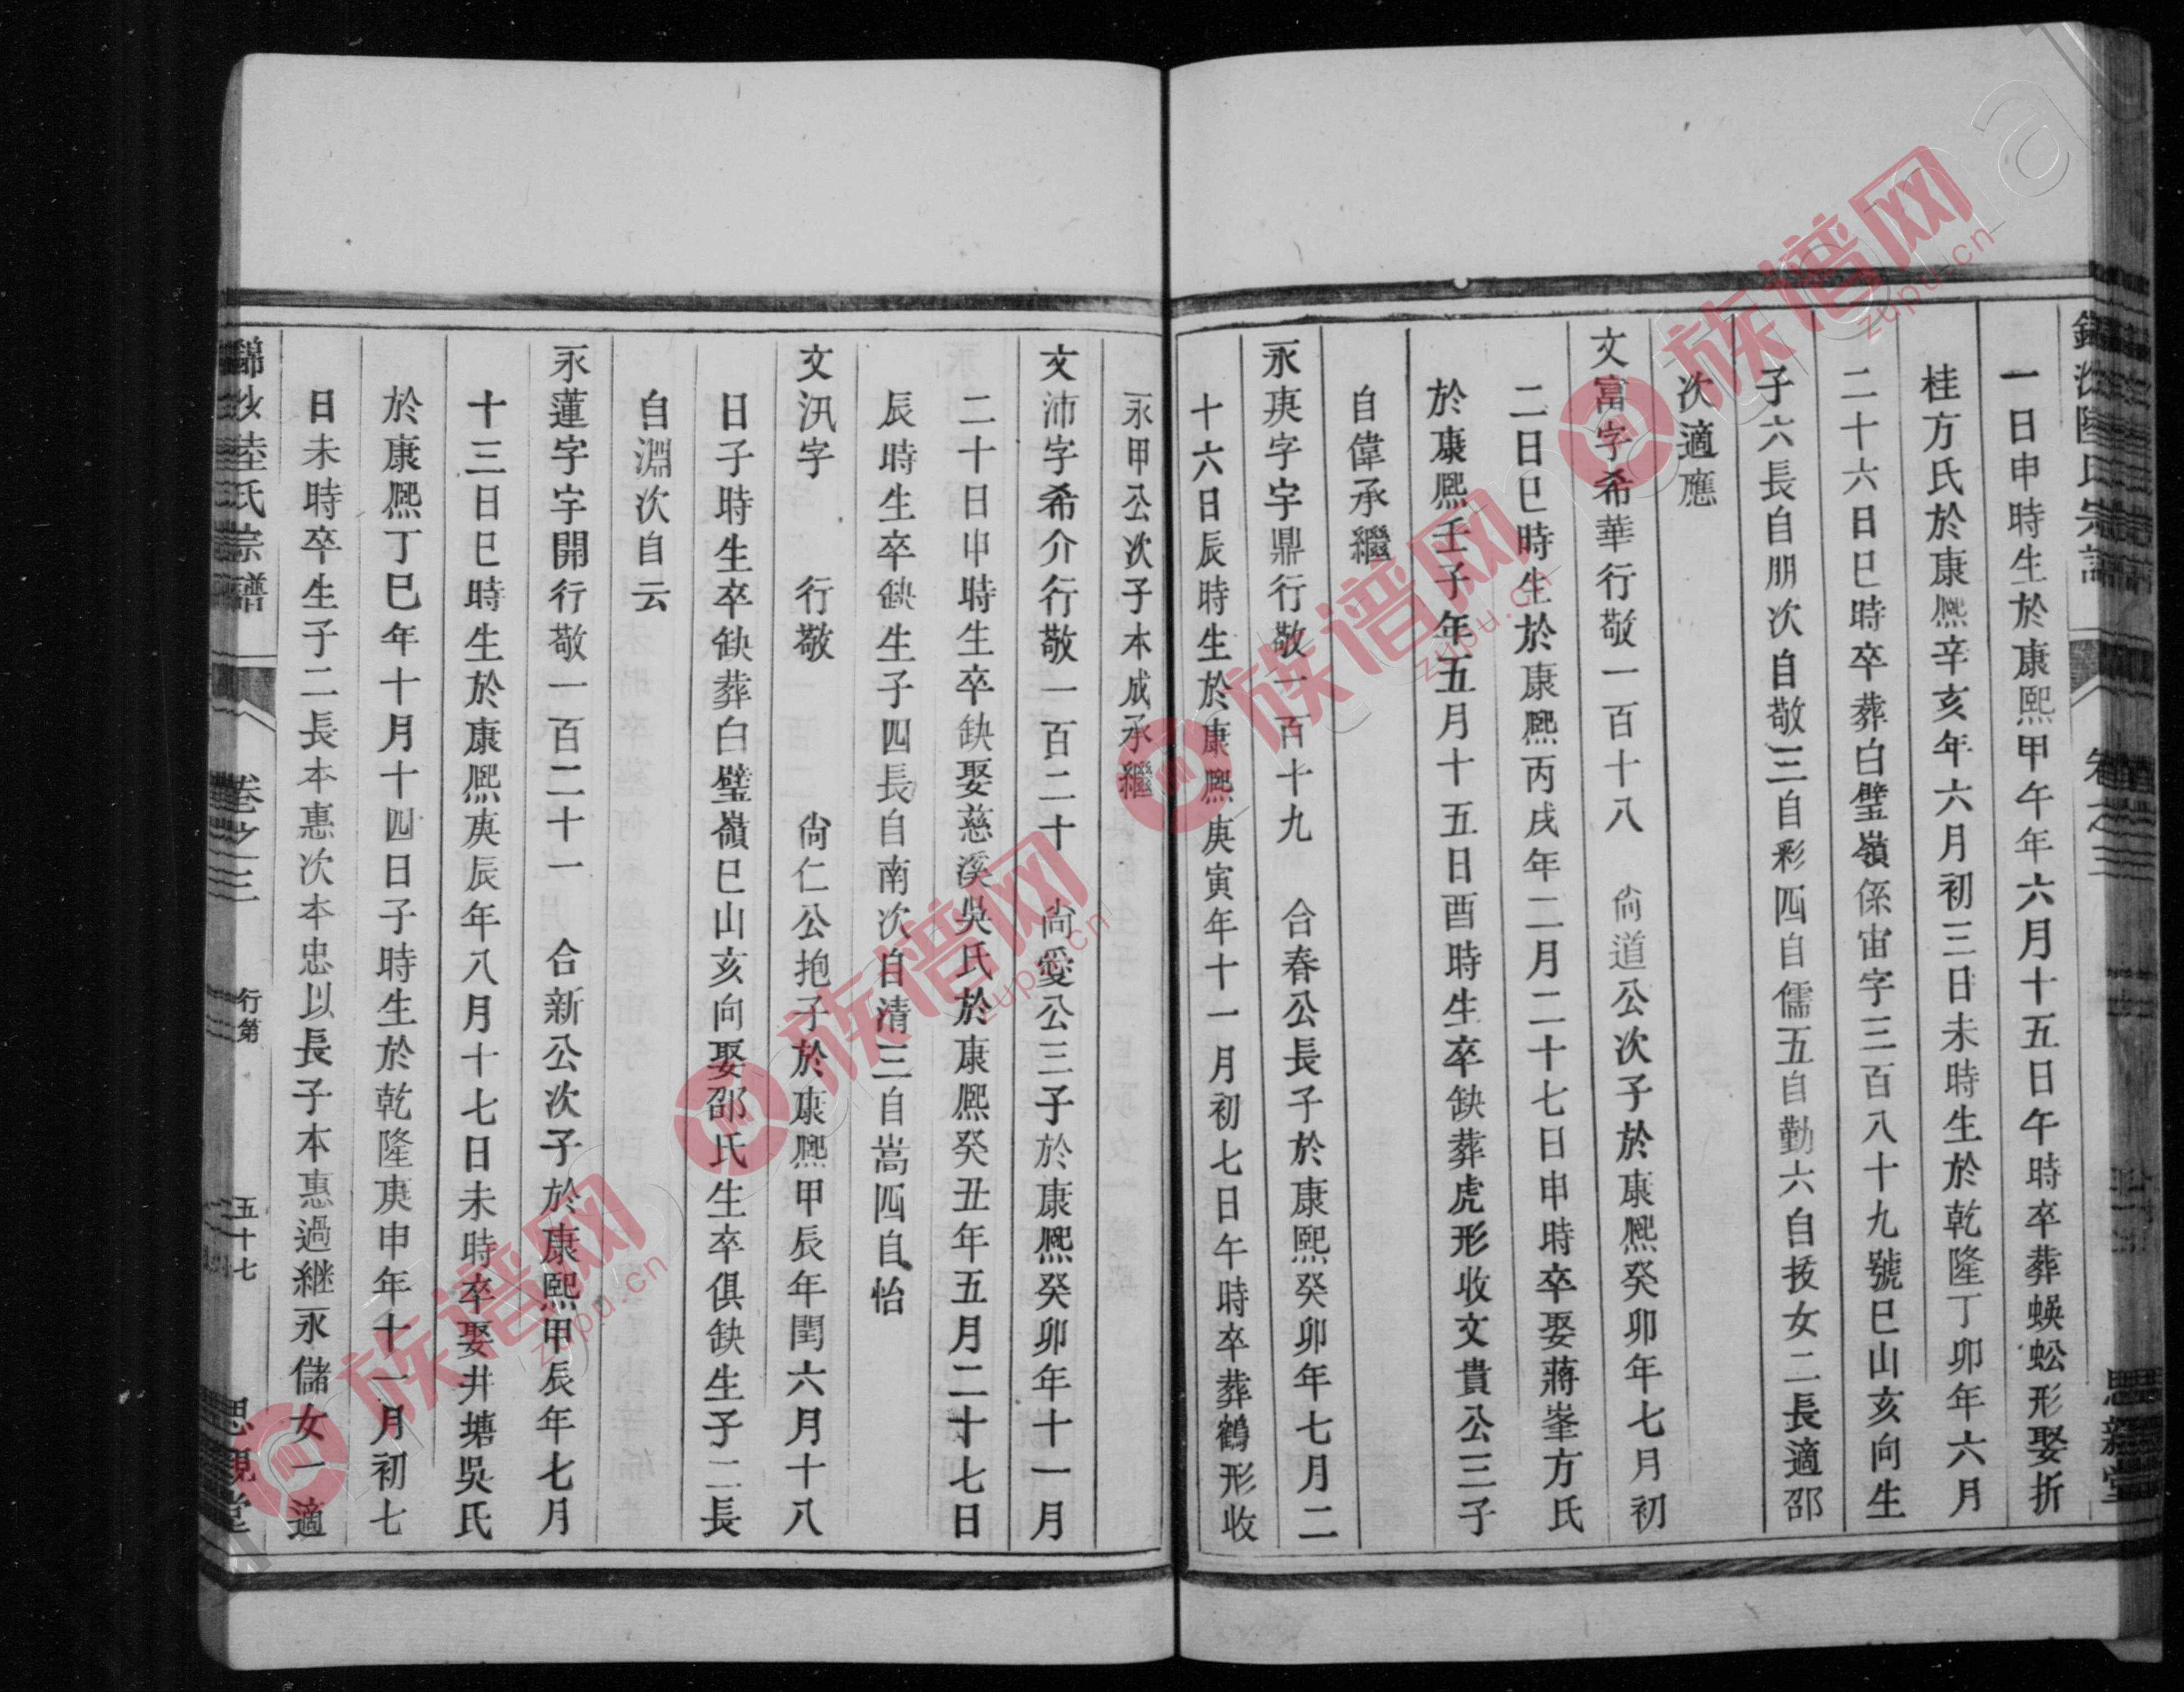 一日申時生於康熙甲午年六月十五日午時卒葬蜈蚣形娶折
桂方氏於康熙辛亥年六月初三日未時生於乾隆丁卯年六月
二十六日巳時卒葬白璧嶺係宙字三百八十九號巳山亥向生
子六長自朋次自敬三自彩四自儒五自勤六自㧞女二長適邵
次適應
文富字希華行敬一百十八 尙道公次子於康熙癸卯年七月初
二日巳時生於康熙丙戌年二月二十七日申時卒娶蔣峯方氏
於康熙壬子年五月十五日酉時生卒缺葬虎形收文貴公三子
自偉承繼
永庚字字鼎行敬一百十九 合春公長子於康熙癸卯年七月二
十六日辰時生於康熙庚寅年十一月初七日午時卒葬鶴形收
永甲公次子本成承繼
文沛字希介行敬一百二十 尙愛公三子於康熙癸卯年十一月
二十日申時生卒缺娶慈溪吳氏於康熙癸丑年五月二十七日
辰時生卒缺生子四長自南次自清三自嵩四自怡
文汛字 行敬 尙仁公抱子於康熙甲辰年閏六月十八
日子時生卒缺葬白璧嶺巳山亥向娶邵氏生卒俱缺生子二長
自淵次自云
永蓮字字開行敬一百二十一 合新公次子於康熙甲辰年七月
十三日巳時生於康熙庚辰年八月十七日未時卒娶井塘吳氏
於康熙丁巳年十月十四日子時生於乾隆庚申年十一月初七
日未時卒生子二長本惠次本忠以長子本惠過継永儲女一適
錦沙陸氏宗譜 卷之三 行第 五十七 思親堂
族谱网
zupu.cn